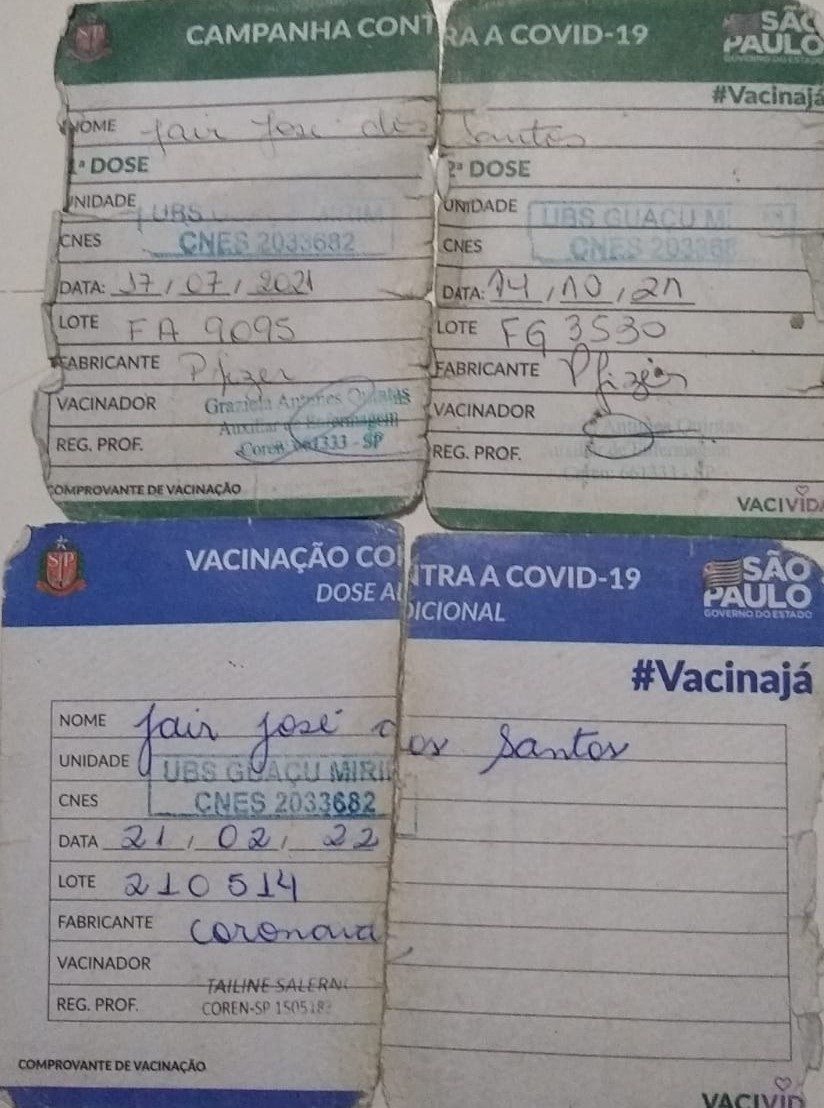 CAMPANHA CONTRA A COVID-19
SÃO PAULO
GOVERNO DO ESTADO
#Vacinajá
NOME Jair José dos Santos
1ª DOSE
UNIDADE UBS
CNES CNES 2033682
DATA: 17/07/2021
LOTE FA 9095
FABRICANTE Pfizer
VACINADOR Graziela Antunes Quintas
Auxiliar de Enfermagem
REG. PROF. Coren 661333 - SP
COMPROVANTE DE VACINAÇÃO
2ª DOSE
UNIDADE UBS GUAÇU MI
CNES CNES 203368
DATA: 14/10/21
LOTE FG 3530
FABRICANTE Pfizer
VACINADOR Antunes Quintas
Auxiliar de Enfermagem
REG. PROF. Coren: 661333 - SP
VACIVIDA
SP
VACINAÇÃO CONTRA A COVID-19
DOSE ADICIONAL
SÃO PAULO
GOVERNO DO ESTADO
#Vacinajá
NOME Jair José dos Santos
UNIDADE UBS GUAÇU MIRIM
CNES CNES 2033682
DATA 21/02/22
LOTE 210514
FABRICANTE coronava
VACINADOR TAILINE SALERN
REG. PROF. COREN-SP 150518
COMPROVANTE DE VACINAÇÃO
VACIVID